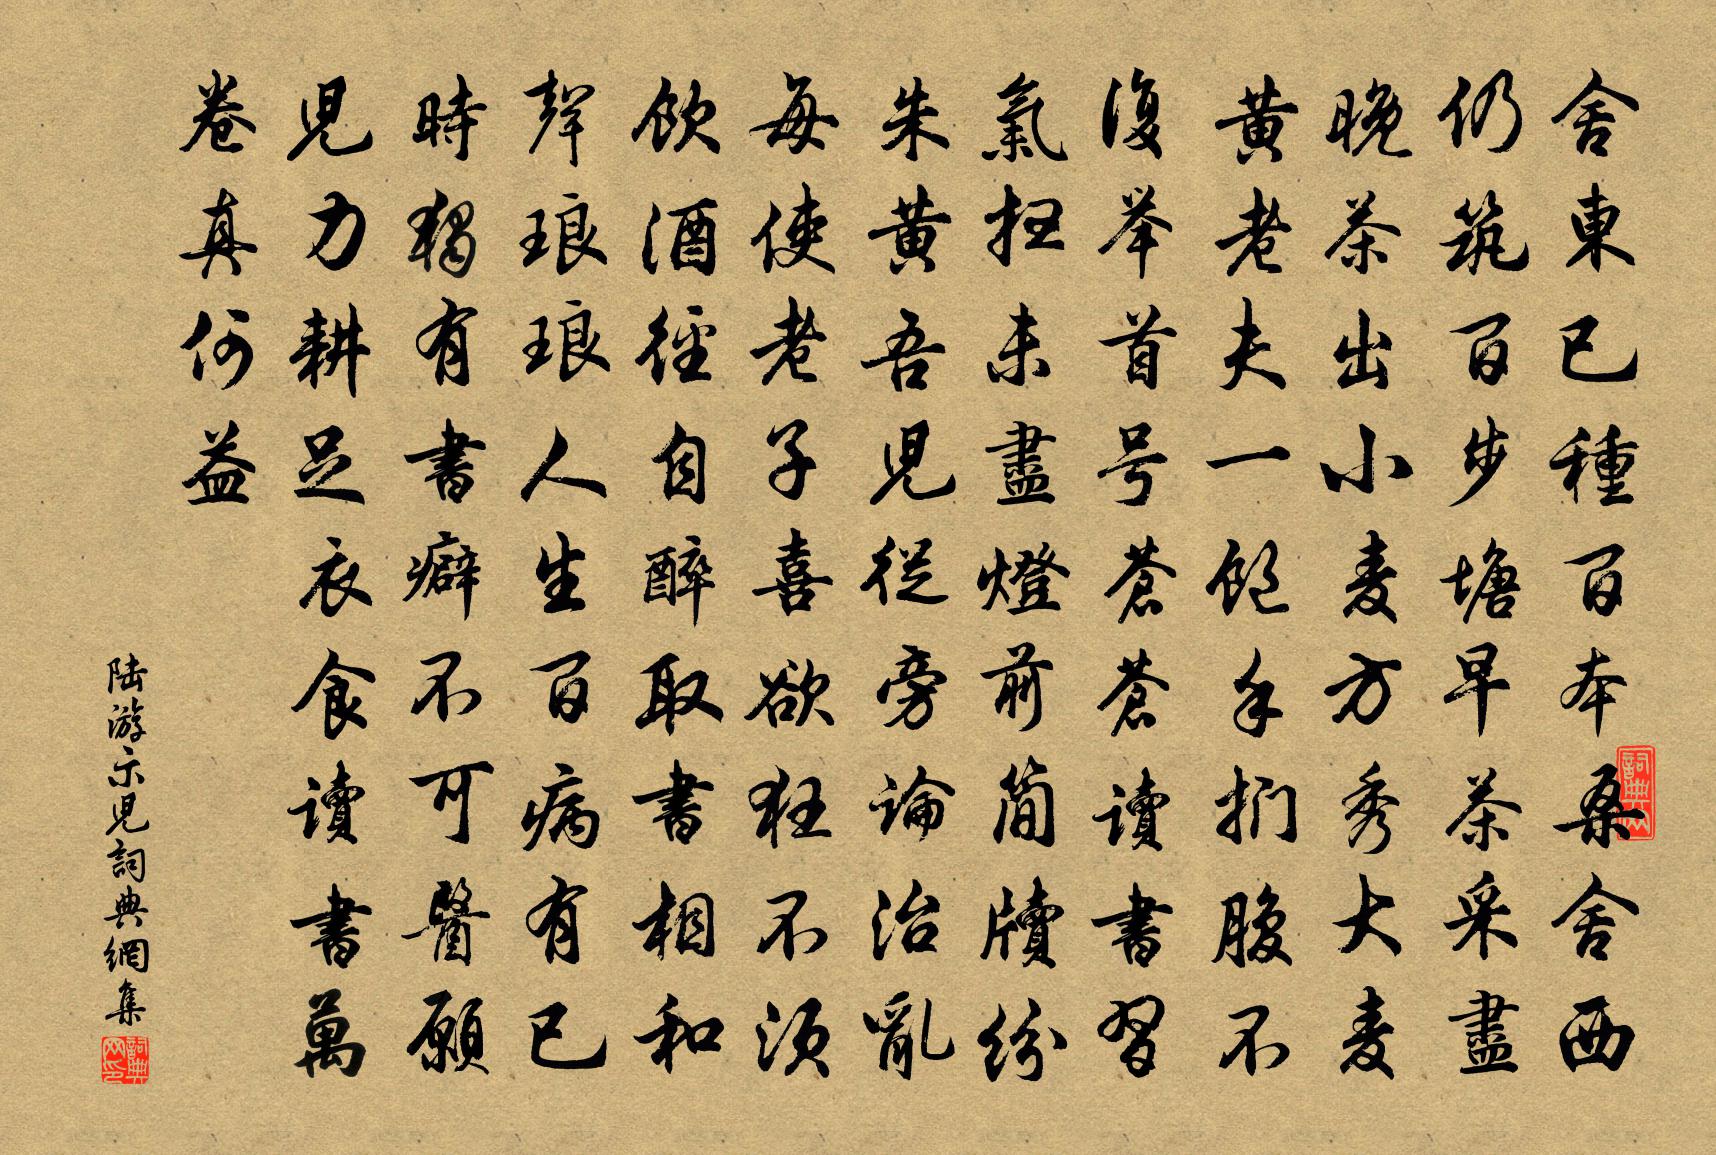 舍東已種百本桑舍西
仍筑百步塘早茶采盡
晚茶出小麦方秀大麦
黄老夫一飽手捫腹不
復举首号蒼蒼讀書習
氣扫未盡燈前简牘紛
朱黄吾児從旁論治亂
每使老子喜欲狂不须
飲酒徑自醉取書相和
聲琅琅人生百病有已
時獨有書癖不可醫願
児力耕足衣食讀書萬
卷真何益
陆游示児詞典網集
詞典网
詞典网印